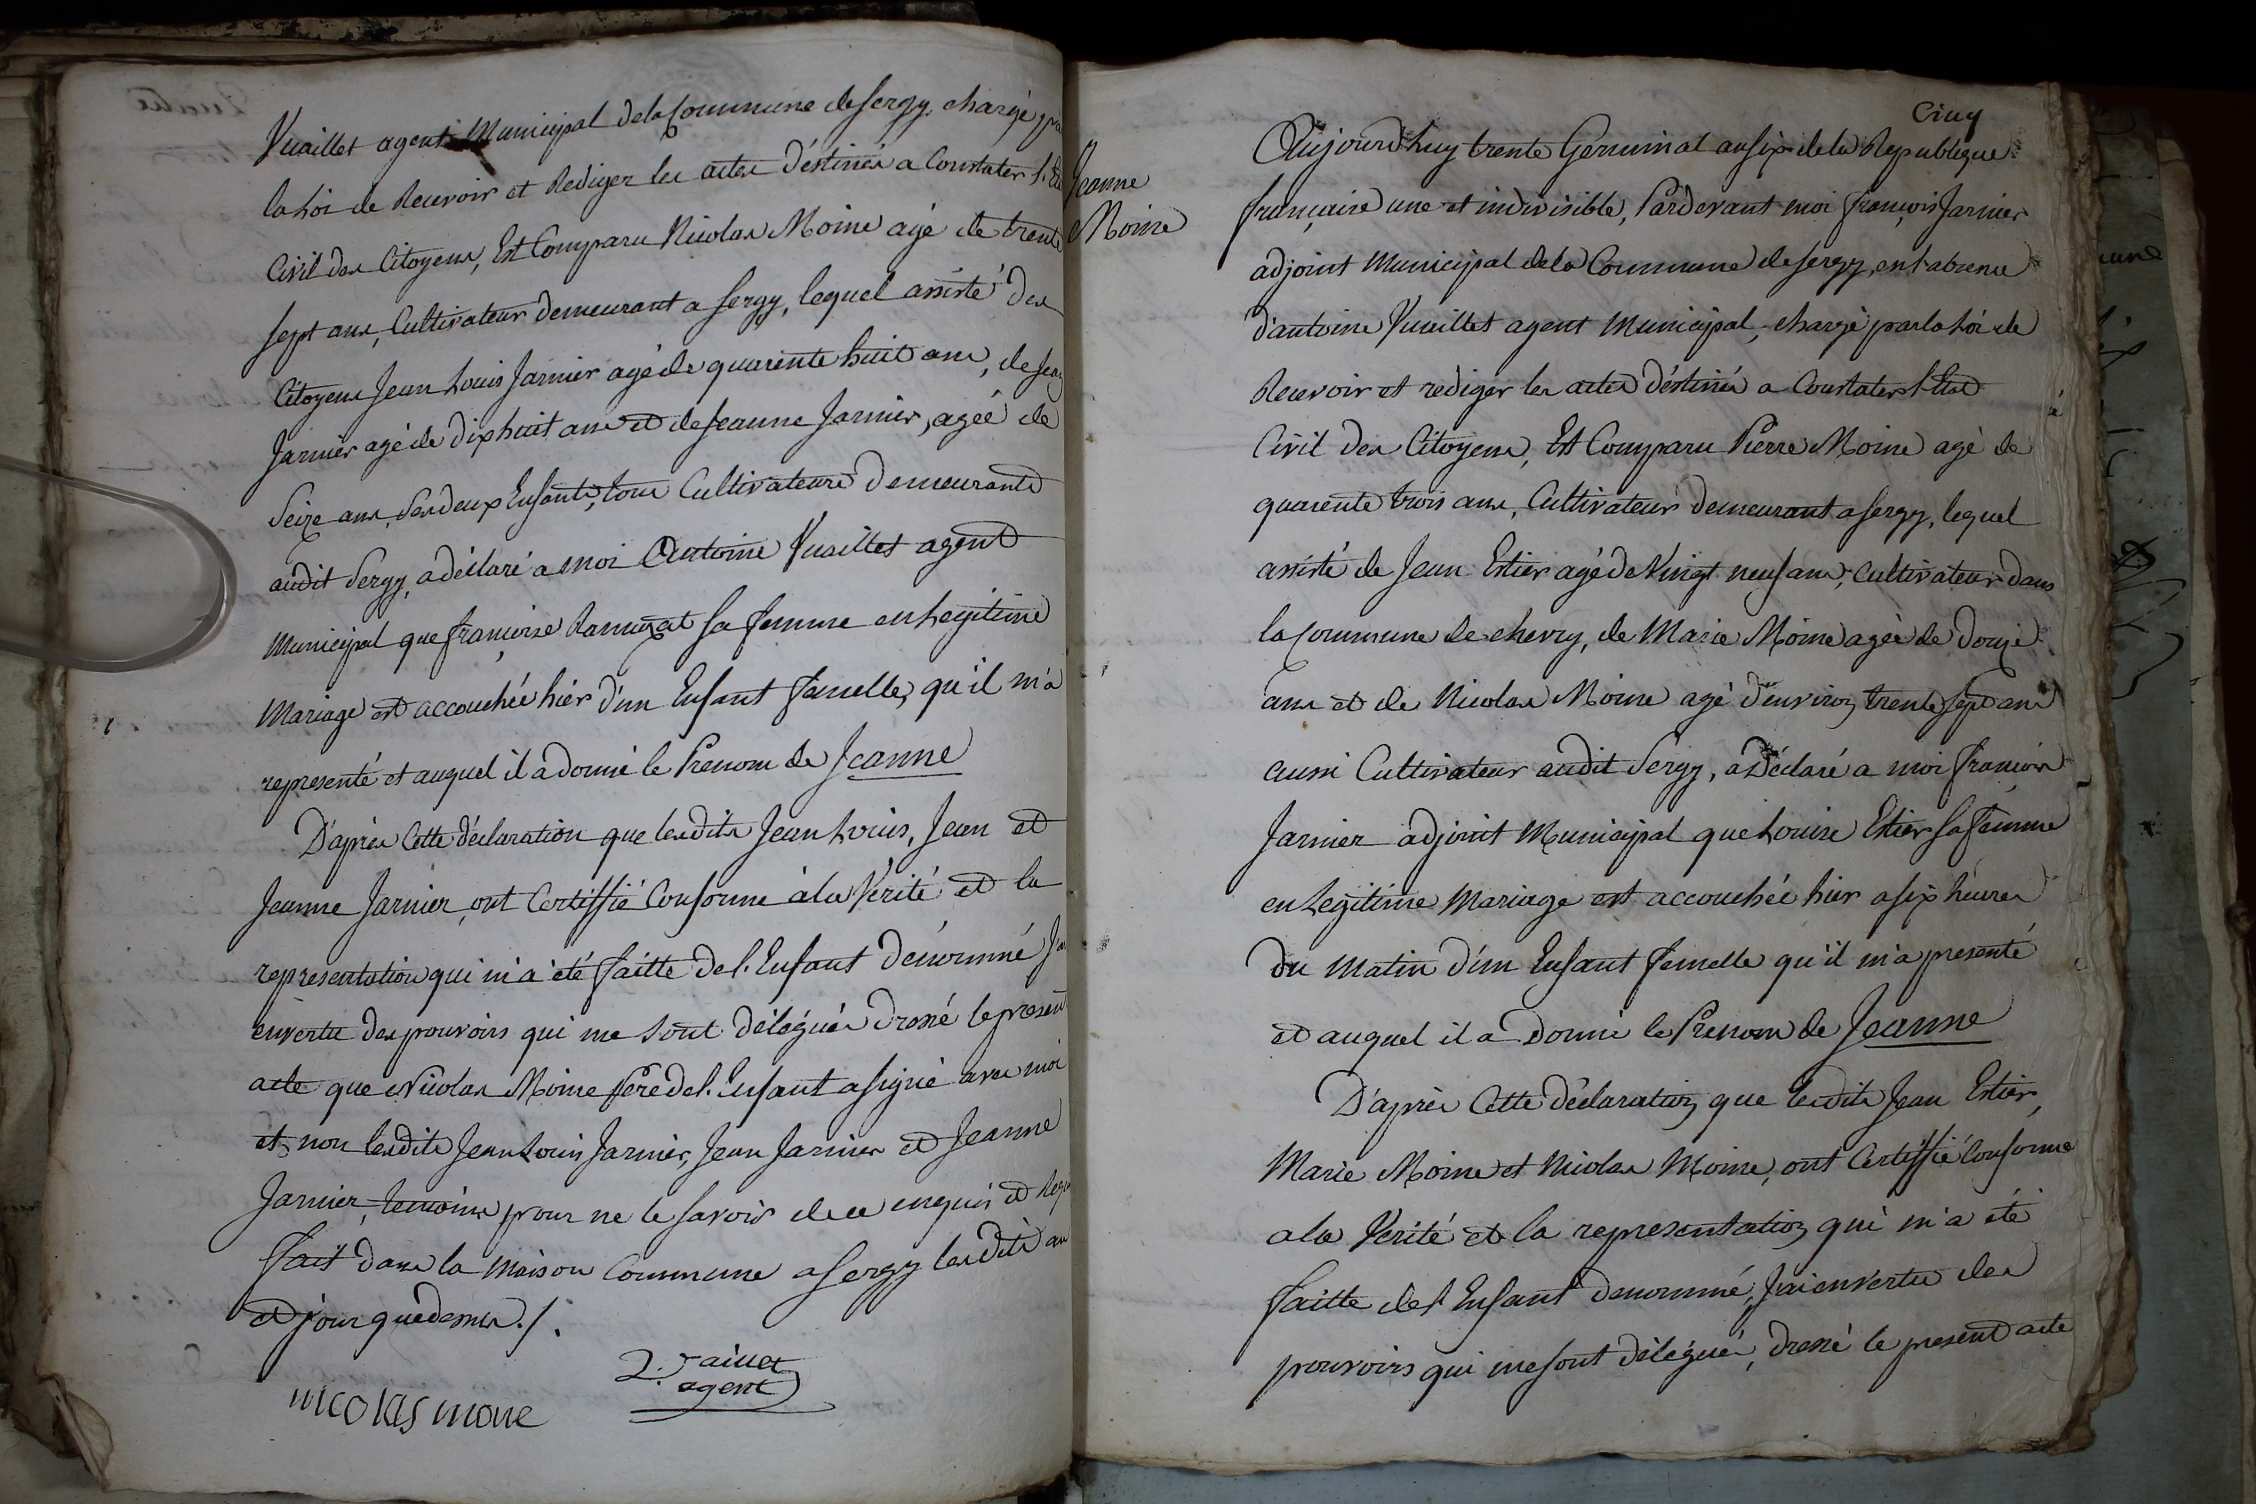 Vuaillet agent Municipal de la Commune de Sergy, chargé par
la Loi de Recevoir et Rediger les actes déstinés a Constater l'Etat
Civil des Citoyens, Est Comparu Nicolas Moine agé de trente
sept ans, Cultivateur demeurant a Sergy, lequel assisté des
Citoyens Jean Louis Jarnier agé de quarente huit ans, de Jean
Jarnier agé de dixhuit ans et de Jeanne Jarnier, agéé de
Seize ans, Ses deux Enfants, tous Cultivateurs Demeurants
audit Sergy, a déclaré a moi Antoine Vuaillet agent
Municipal que françoise sa femme en Legitime
Mariage est accouchée hier d'un Enfant femelle, qu'il m'a
representé et auquel il a donné le Prenom de Jeanne
D'après Cette déclaration que lesdits Jean Louis, Jean et
Jeanne Jarnier, ont Certiffié Conforme à la Vérité et la
representation qui m'a été faitte de l'Enfant dénommé J'ai
envertu des pouvoirs qui me sont délégués dressé le present
acte que Nicolas Moine père de l'Enfant a signé avec moi
et non lesdits Jean Louis Jarnier, Jean Jarnier et Jeanne
Jarnier, temoins pour ne le savoir de ce enquis et
fait dans la Maison Commune a Sergy lesdits an
et jour que dessus ./.
nicolas mone
Vaillet
agent
Cinq
Jeanne
Moine
Aujourd'huy trente Germinal an six de la Republique
française une et indivisible, Pardevant moi françois Jarnier
adjoint Municipal de la Commune de Sergy, en l'absence
d'antoine Vuaillet agent Municipal, chargé par la Loi de
Recevoir et rediger les actes déstinés a Constater l'Etat
Civil des Citoyens, Est Comparu Pierre Moine agé de
quarente trois ans, Cultivateur demeurant a Sergy, lequel
assisté de Jean Estier agé de Vingt neuf ans, Cultivateur dans
la Commune de chevry, de Marie Moine agéé de douze
ans et de Nicolas Moine agé d'environ trente sept ans
aussi Cultivateur audit Sergy, a Déclaré a moi françois
Jarnier adjoint Municipal que Louise Estier sa femme
en Legitime Mariage est accouchée hier a six heures
du Matin d'un Enfant femelle qu'il m'a presenté
et auquel il a Donné le Prenom de Jeanne
D'après Cette déclaration que lesdits Jean Estier,
Marie Moine et Nicolas Moine, ont Certiffié Conforme
a la Verité et la representation qui m'a été
faitte de l'Enfant denommé, J'ai envertu des
pouvoirs qui me sont délégués, dressé le present acte